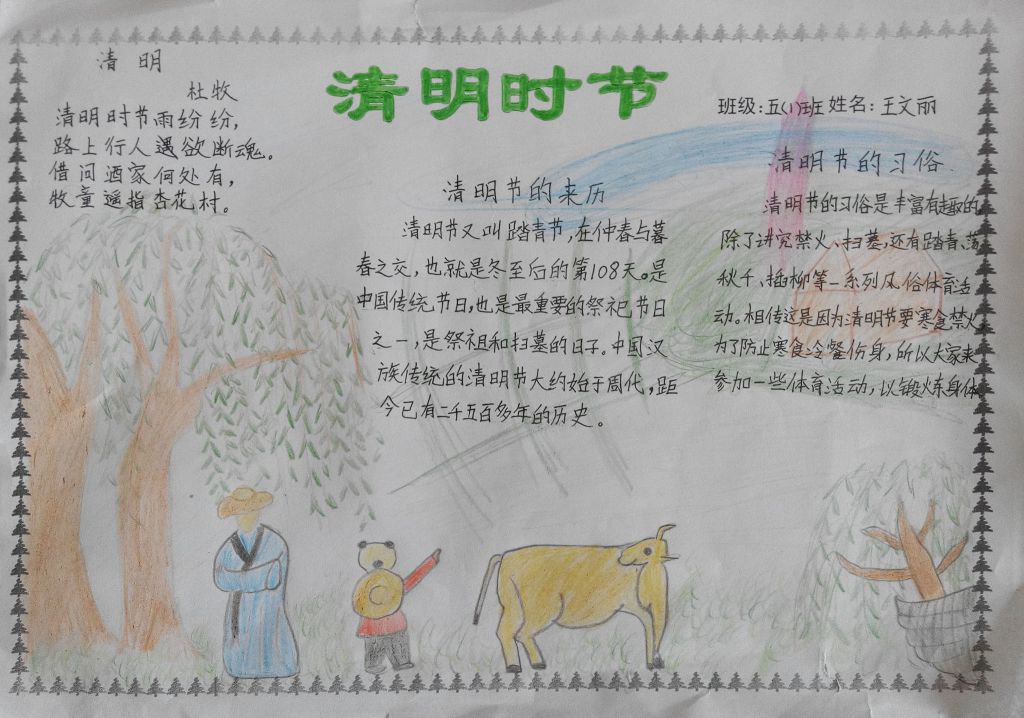 清明
杜牧
清明时节雨纷纷，
路上行人遇欲断魂。
借问酒家何处有，
牧童遥指杏花村。
清明时节
班级：五(1)班 姓名：王文丽
清明节的来历
清明节又叫踏青节，在仲春与暮
春之交，也就是冬至后的第108天。是
中国传统节日，也是最重要的祭祀节日
之一，是祭祖和扫墓的日子。中国汉
族传统的清明节大约始于周代，距
今已有二千五百多年的历史。
清明节的习俗
清明节的习俗是丰富有趣的
除了讲究禁火、扫墓，还有踏青、荡
秋千、插柳等一系列风俗体育活
动。相传这是因为清明节要寒食禁火，
为了防止寒食冷餐伤身，所以大家来
参加一些体育活动，以锻炼身体。